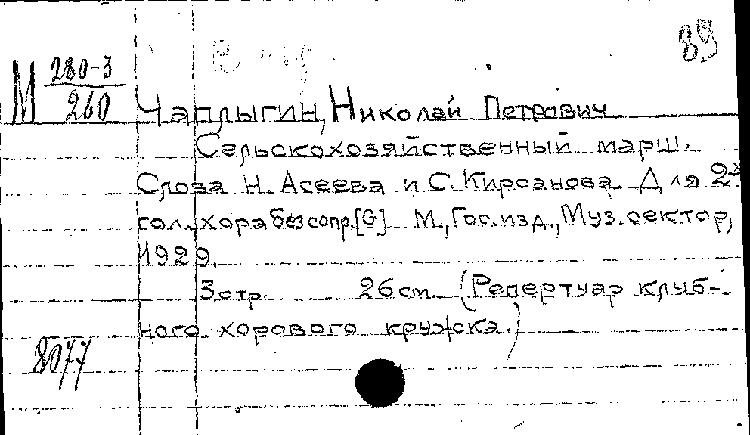 89
М 280-3/260
Чаплыгин, Николай Петрович
Сельскохозяйственный марш.
Слова Н. Асеева и С. Кирсанова. Для 2х
гол. хора без сопр. [G] М., Гос. изд., Муз. сектор,
1929.
3 стр. 26 см. (Репертуар клуб-
ного хорового кружка.)
8077